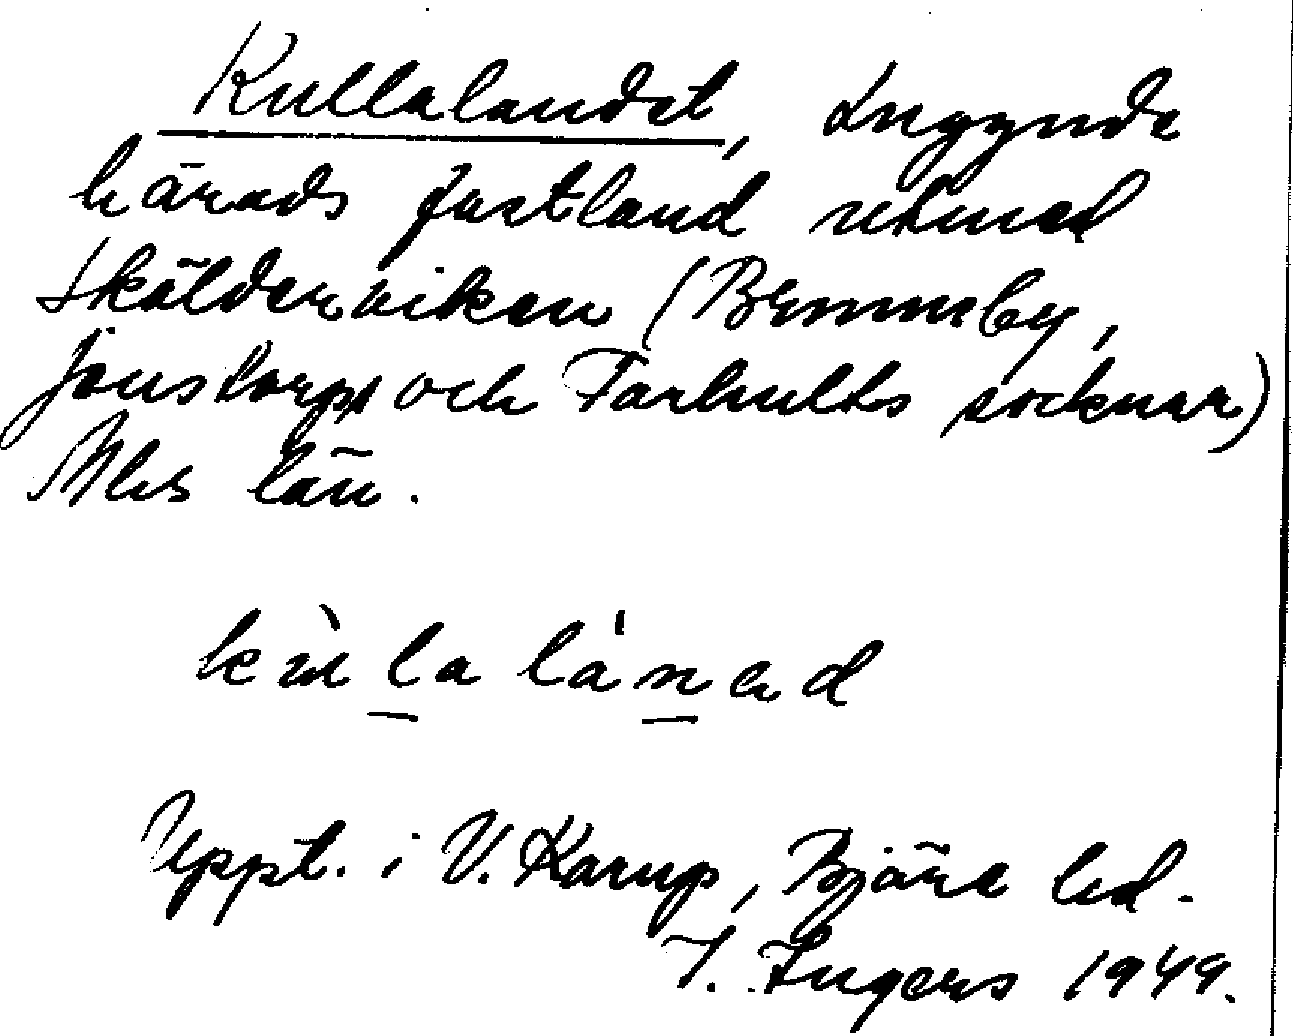 Kullalandet, Luggude
härads fastland utmed
Skälderviken (Brunnby,
Jonstorp och Farhults socknar)
Mlhs län.
kùlalánad
Uppt. i V. Karup, Bjäre hd.
I. Ingers 1949.